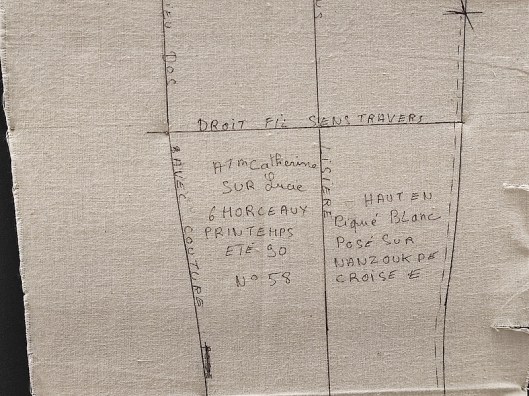 EU DOS
DROIT FIL SENS TRAVERS
AVEC COUTURE
ATM Catherine
SUR Lucie
6 MORCEAUX
PRINTEMPS
ETÉ 90
No 58
LISIERE
HAUT EN
Piqué BLanc
POSÉ SUR
NANZOUK DE
CROISÉ E